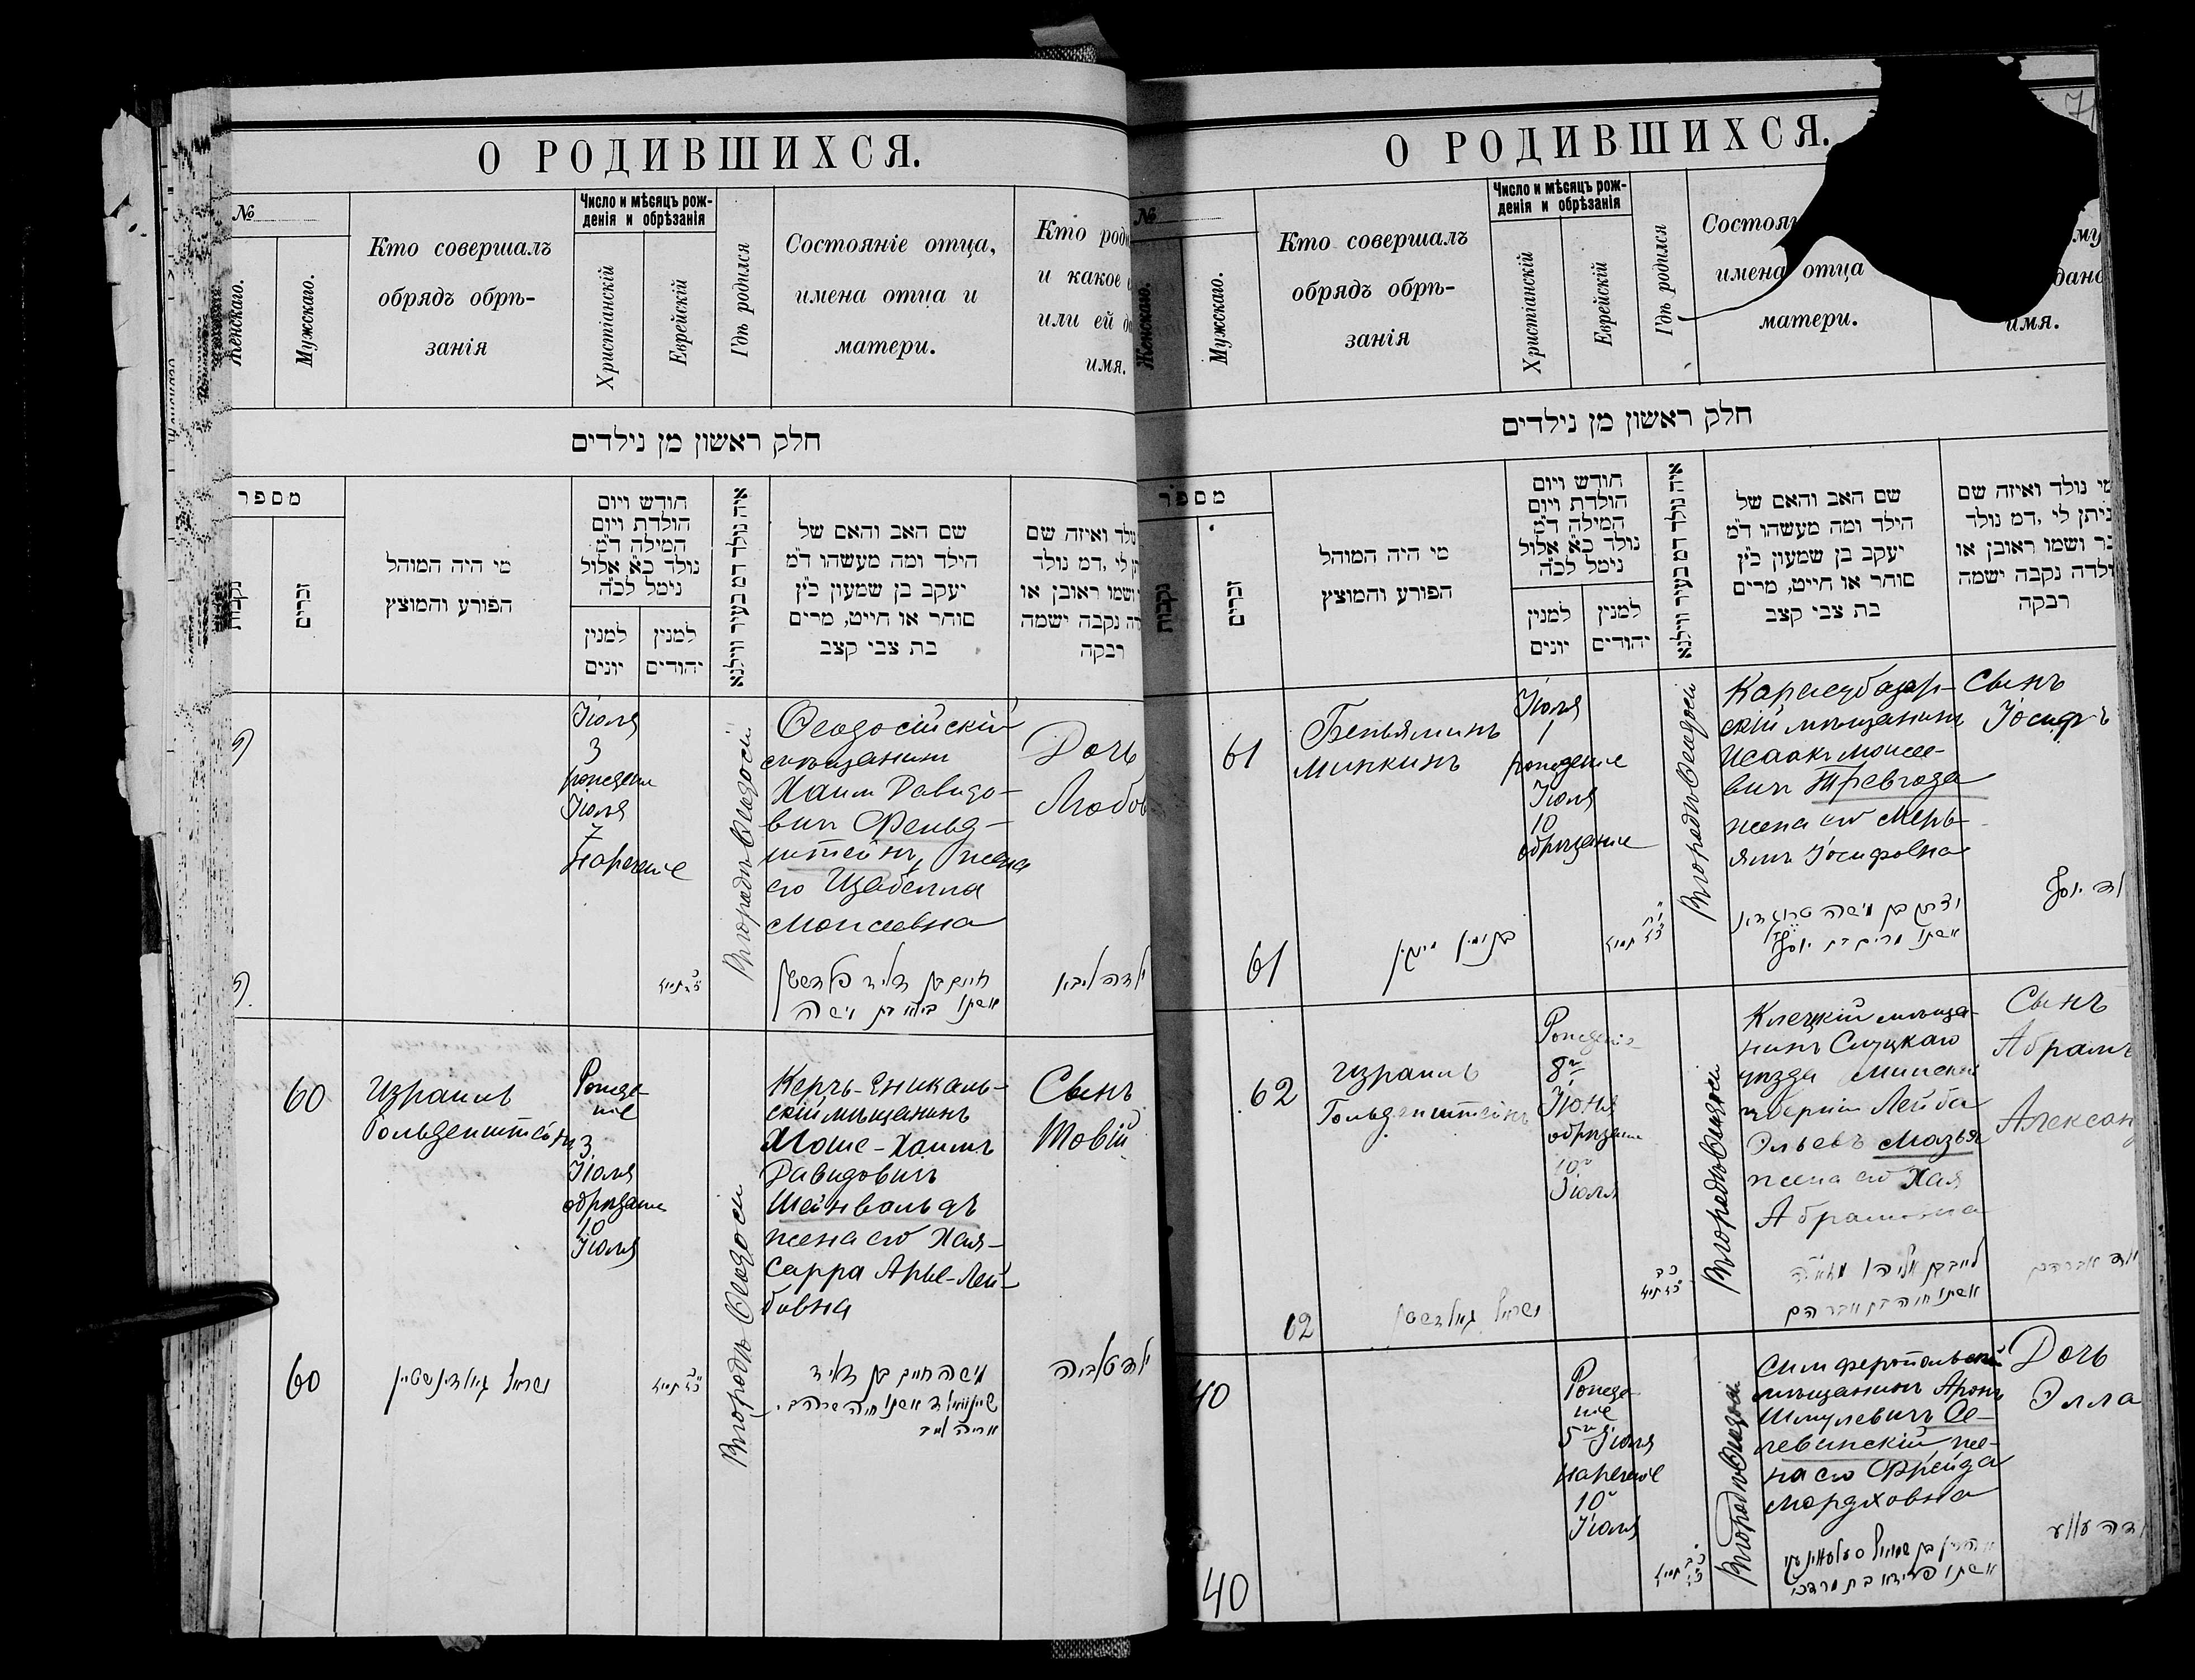 О РОДИВШИХСЯ.
№
Женскаго.
Мужскаго.
Кто совершалъ
обрядъ обрѣ-
занія
Число и мѣсяцъ рож-
денія и обрѣзанія
Христіанскій
Еврейскій
Гдѣ родился
Состояніе отца,
имена отца и
матери.
Кто
и какое
или ей
имя.
חלק ראשון מן נילדים
מספר
זכרים
מי היה המוהל
הפורע והמוצץ
חודש ויום
הולדת ויום
המילה ד״מ
נולד כ״א אלול
נימל לכ״ה
למנין
יונים
למנין
יהודים
איה נולד דמ בעיר ווילנא
שם האב והאם של
הילד ומה מעשהו ד״מ
יעקב בן שמעון כ״ץ
סוחר או חייט, מרים
בת צבי קצב
ואיזה שם
לי, דמ נולד
ושמו ראובן או
נקבה ישמה
רבקה
Іюля
3
рожденіе
Іюля
7
нареченіе
Въ городѣ Ѳеодосіи
Ѳеодосійскій
мѣщанинъ
Хаим Давидо-
вич Фельд-
штейнъ, жена
его
Моисеевна
Дочь
חיים בן דוד פלדשטיין
אשתו בת משה
60
Израиль
Гольденштейнъ
Рожде-
ніе
3
Іюля
обрѣзаніе
10
Іюля
Въ городѣ Ѳеодосіи
Керчь-Еникаль-
скій мѣщанинъ
Моше-Хаимъ
Давидовичъ
Шейнвальдъ
жена его Хая-
Сарра Арье-Лей-
бовна
Сынъ
Товій
60
משה חיים בן דוד
אריה לייב
О РОДИВШИХСЯ.
№
Женскаго.
Мужскаго.
Кто совершалъ
обрядъ обрѣ-
занія
Число и мѣсяцъ рож-
денія и обрѣзанія
Христіанскій
Еврейскій
Гдѣ родился
имена отца
матери.
имя.
חלק ראשון מן נילדים
מספר
נקבות
זכרים
מי היה המוהל
הפורע והמוצץ
חודש ויום
הולדת ויום
המילה ד״מ
נולד כ״א אלול
נימל לכ״ה
למנין
יונים
למנין
יהודים
איה נולד דמ בעיר ווילנא
שם האב והאם של
הילד ומה מעשהו ד״מ
יעקב בן שמעון כ״ץ
סוחר או חייט, מרים
בת צבי קצב
מי נולד ואיזה שם
ניתן לי, דמ נולד
ושמו ראובן או
נקבה ישמה
רבקה
61
Беньяминъ
Минкинъ
Іюля
1
рожденіе
Іюля
10
обрѣзаніе
Въ городѣ Ѳеодосіи
Карасубазар-
скій мѣщанинъ
Исаакъ Моисе-
вич Тревгода
жена его Мерь-
ямъ Іосифовна
Сынъ
Іосифъ
61
אשתו מרים בת יוסף
62
Израиль
Гольденштейнъ
Рожденіе
8го
Іюня
обрѣзаніе
10го
Іюля
Въ городѣ Ѳеодосіи
Клецкій мѣща-
нинъ Слуцкаго
уѣзда Минской
губерніи Лейба
Эльевъ Мазья
жена его Хая
Абрамовна
Сынъ
Абрамъ
62
אשתו חיה בת אברהם
40
Рожде-
ніе
5го Іюля
нареченіе
10го
Іюля
Въ городѣ Ѳеодосіи
Симферопольскій
мѣщанинъ Аронъ
Шмулевичъ Се-
левинскій же-
на его Фрейда
Мордховна
Дочь
Элла
40
אשתו פריידא בת מרדכי